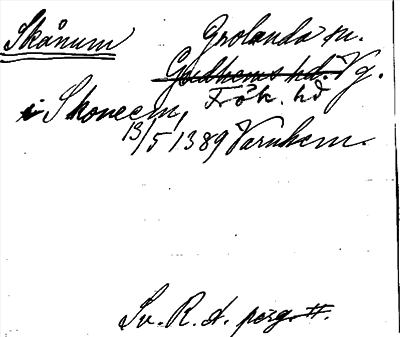 Skånum Grolanda sn.
Gudhems hd. Vg.
Frök. hd
i Skoneem,
13/5 1389 Varnhem.
Sv. R. A. perg. tt.